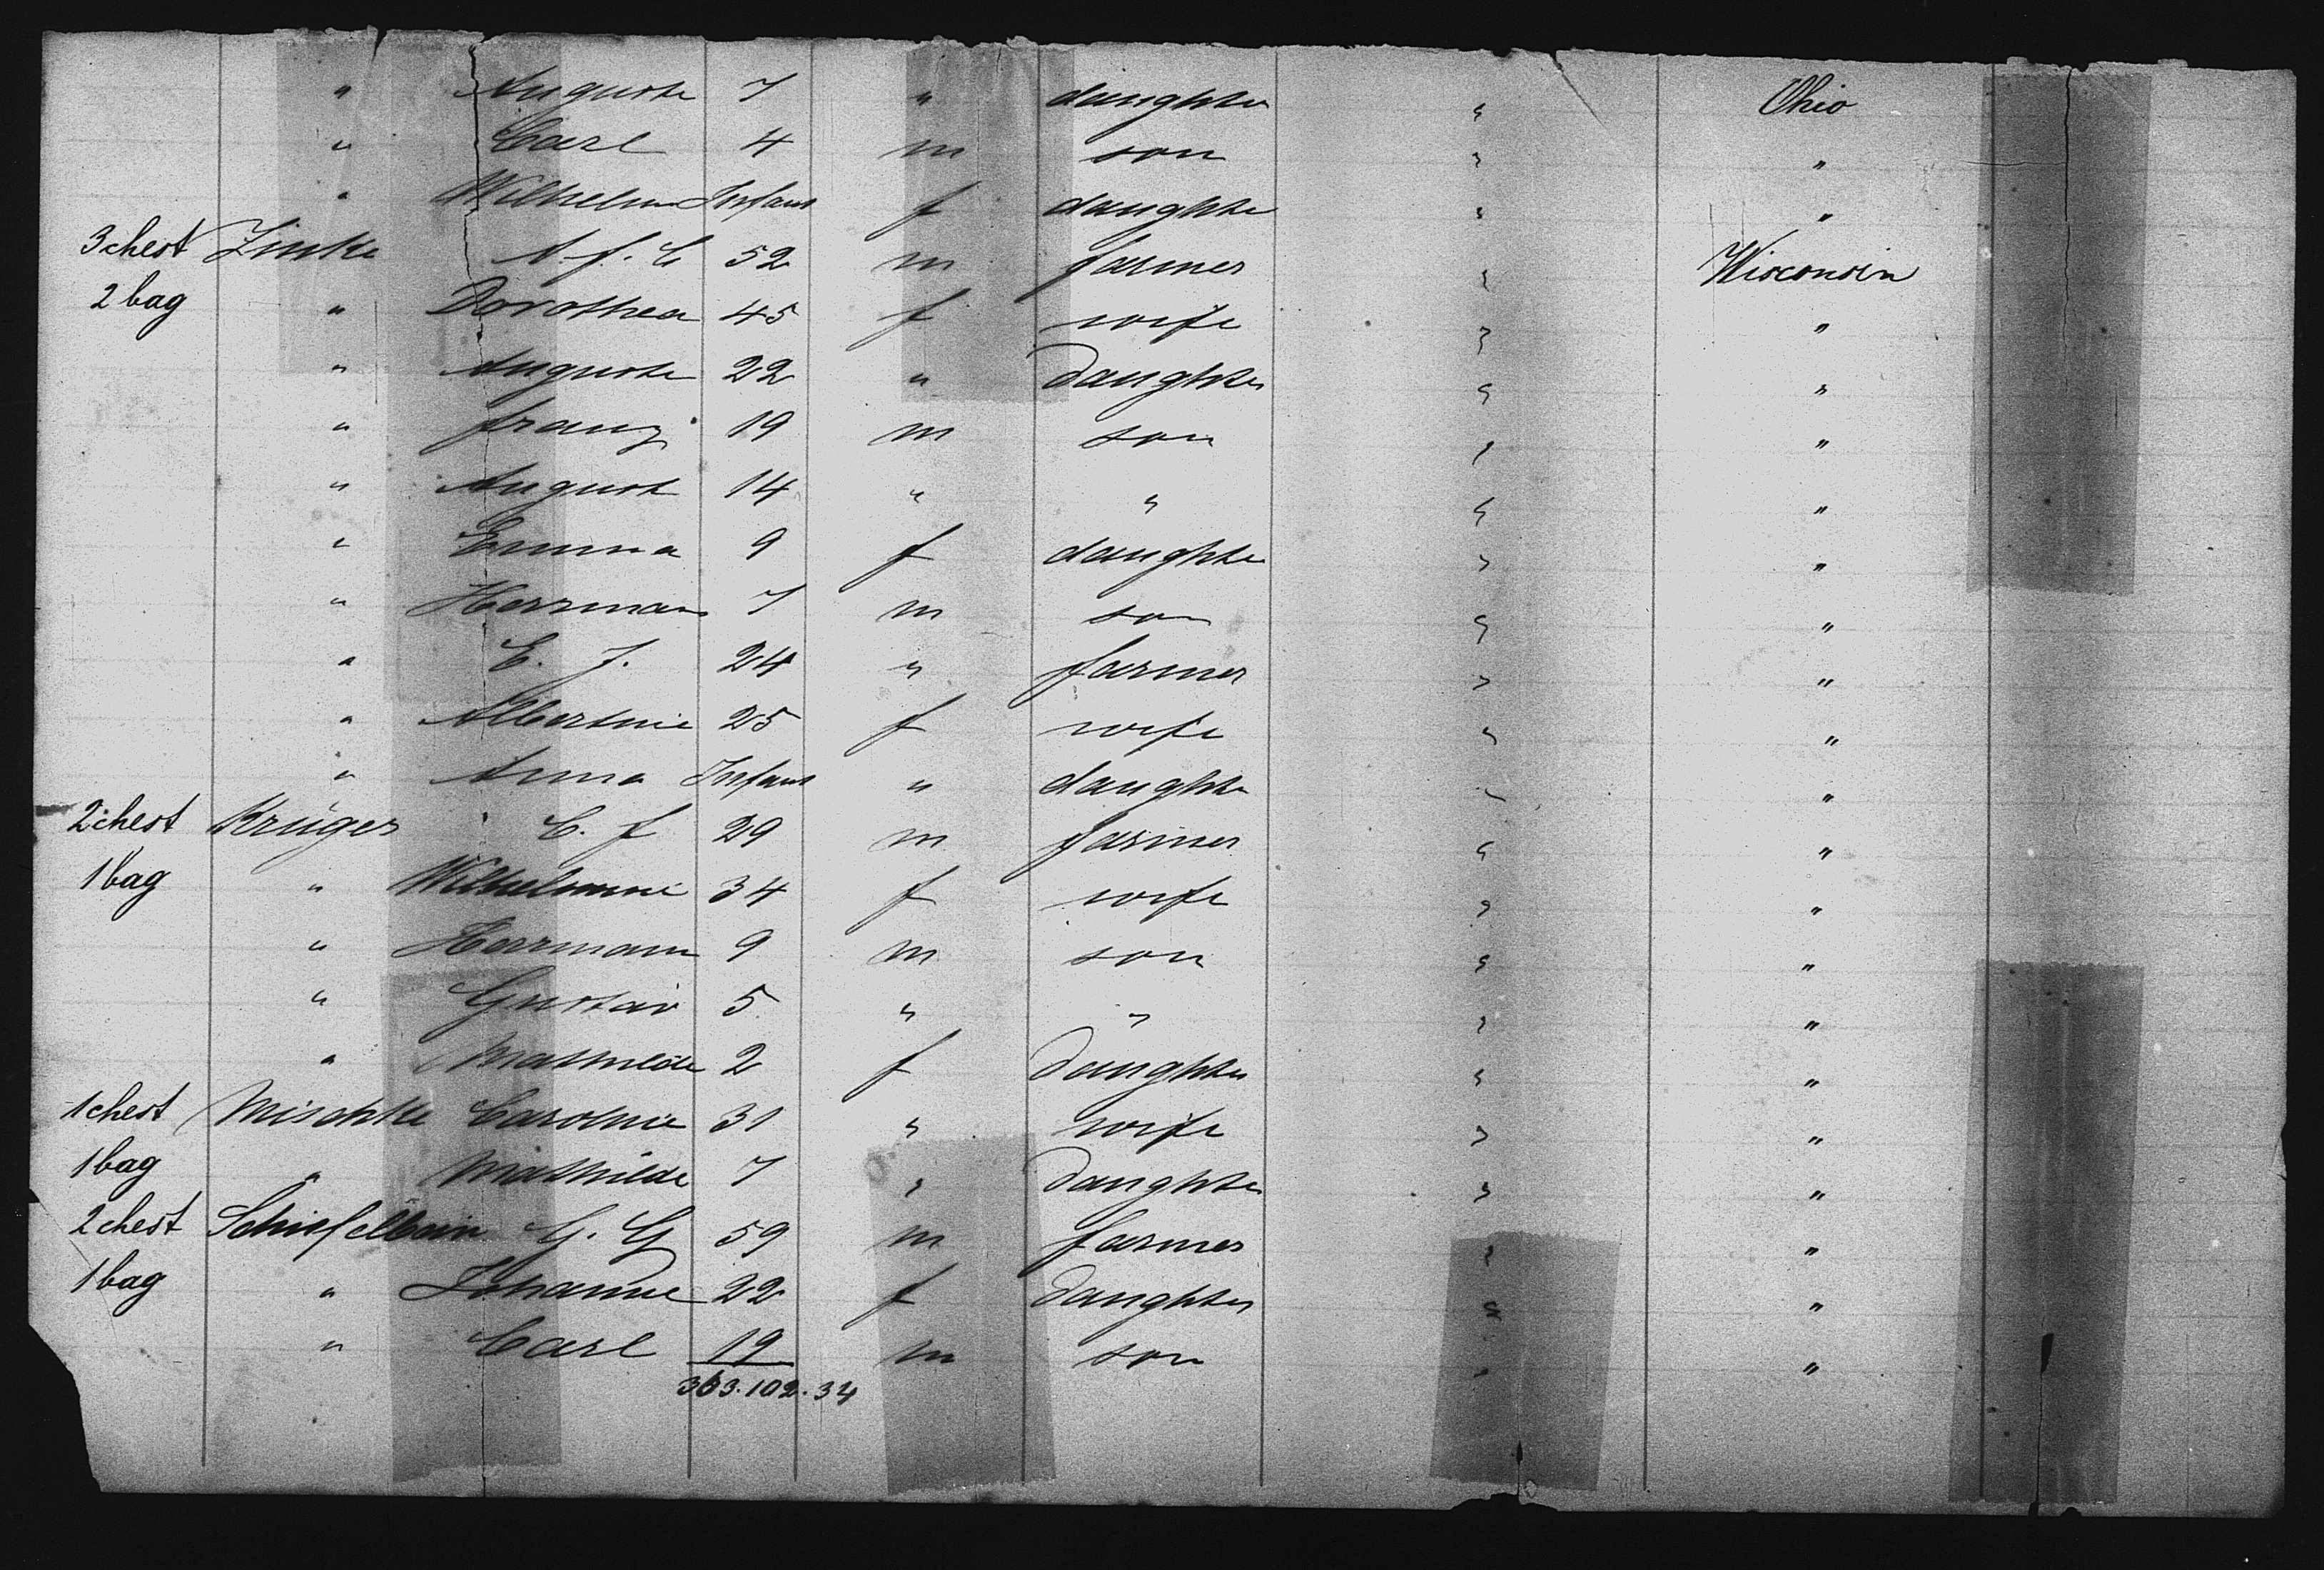 " Auguste 7 " daughter " Ohio
" Carl 4 m son " "
" Wilhelm Infant f daughter " "
3 chest Zinke A. f. C 52 m farmer " Wisconsin
2 bag " Dorothea 45 f wife " "
" Auguste 22 " daughter " "
" franz 19 m son " "
" August 14 " " " "
" Emma 9 f daughter " "
" Herrmann 7 m son " "
" C. f. 24 " farmer " "
" Albertine 25 f wife " "
" Anna Infant " daughter " "
2 chest Krüger C. f 29 m farmer " "
1 bag " Wilhelmine 34 f wife " "
" Herrmann 9 m son " "
" Gustav 5 " " " "
" Mathilde 2 f daughter " "
1 chest Mischke Caroline 31 " wife " "
1 bag " Mathilde 7 " daughter " "
2 chest Schiefelbein G. G 59 m farmer " "
1 bag " Johanne 22 f daughter " "
" Carl 19 m son " "
363.102.34